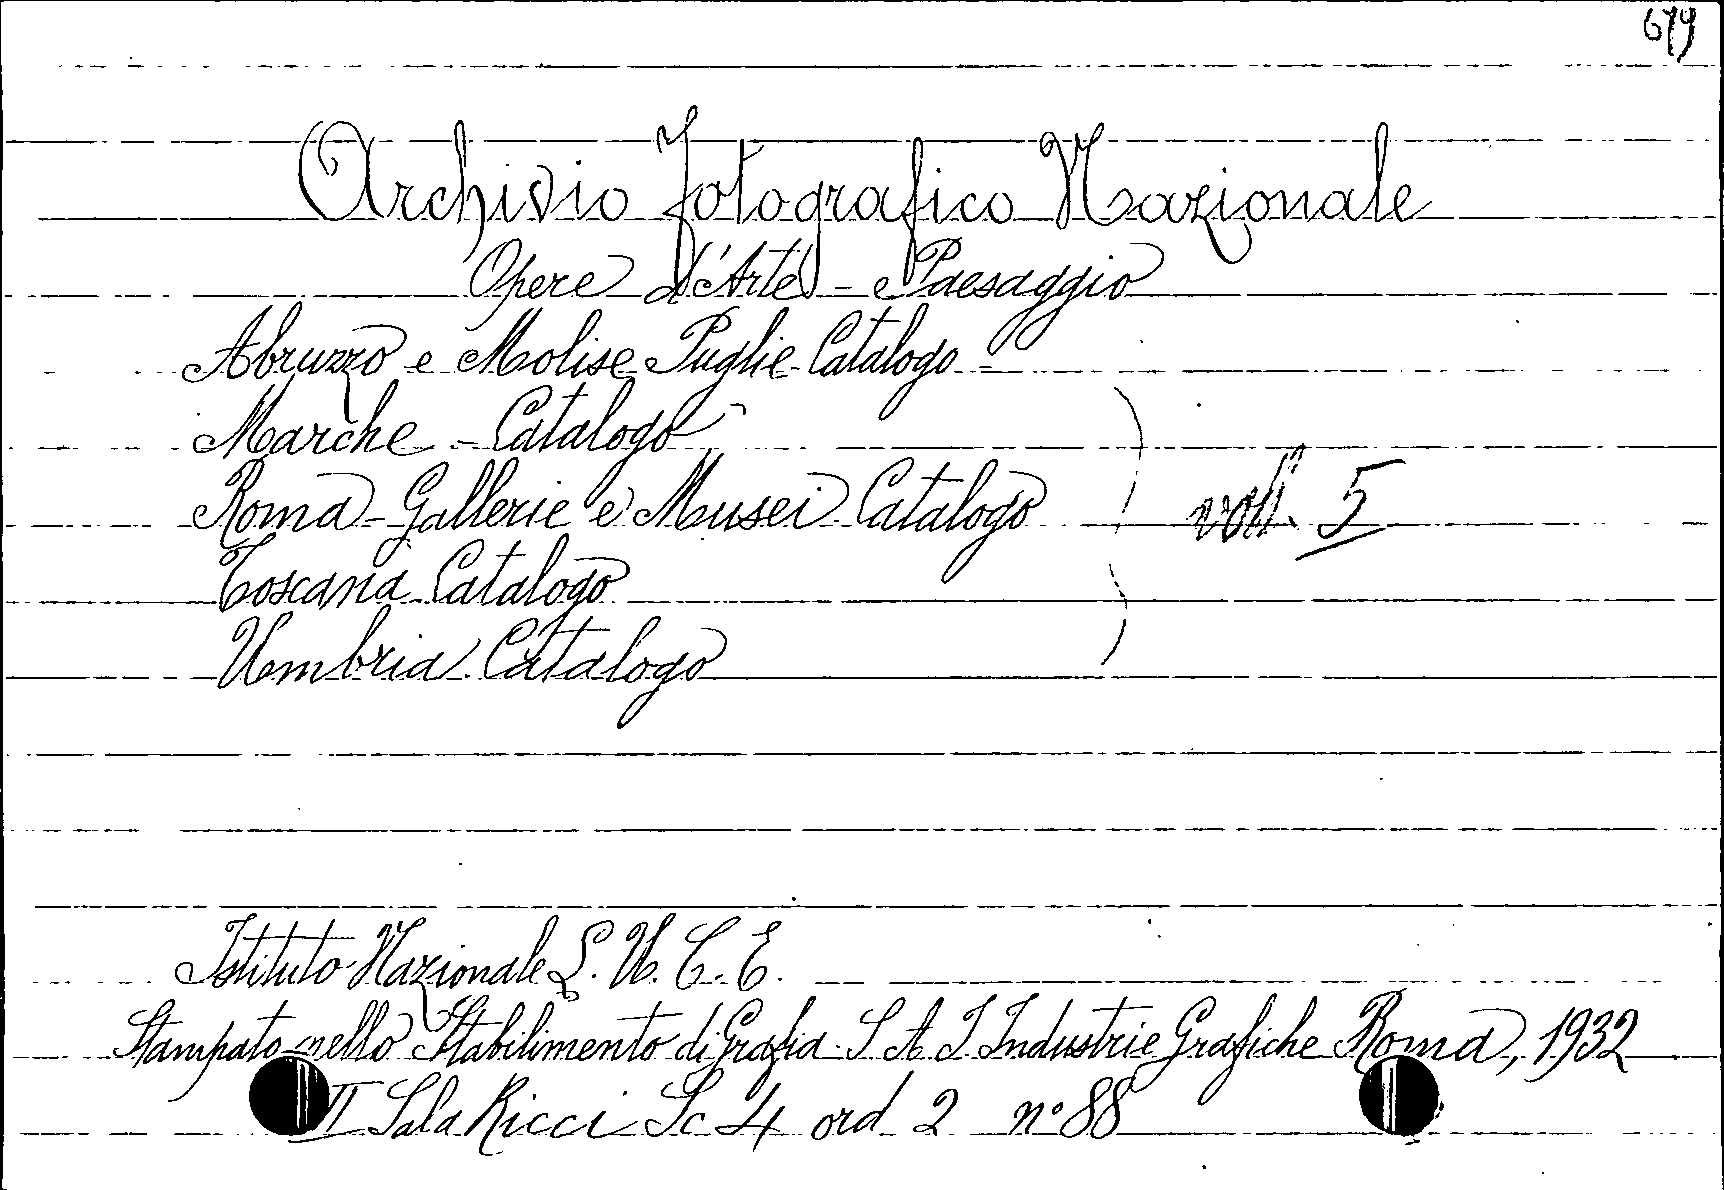 679
Archivio Fotografico Nazionale
Opere d'Arte - e Paesaggio
Abruzzo e Molise Puglie Catalogo -
Marche - Catalogo
Roma - Gallerie e Musei Catalogo
voll. 5
Toscana Catalogo
Umbria Catalogo
Istituto Nazionale L. U. C. E.
Stampato nello Stabilimento di Grafia. S A I Industrie Grafiche Roma, 1932
II Sala Ricci Sc 4 ord 2 n° 88